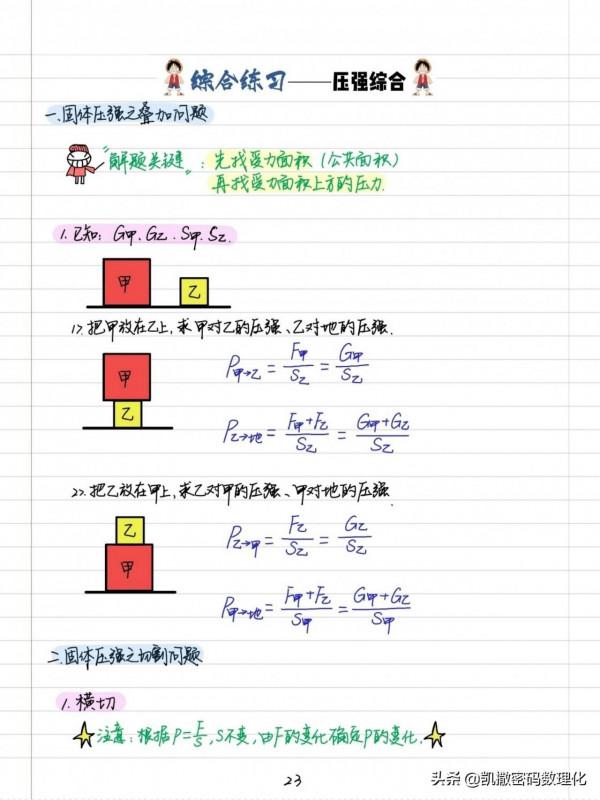 综合练习——压强综合
一.固体压强之叠加问题
“解题关键”:先找受力面积(公共面积)
再找受力面积上方的压力
1.已知:G甲.G乙.S甲.S乙.
甲
乙
1>.把甲放在乙上,求甲对乙的压强、乙对地的压强.
甲
乙
P甲→乙=F甲/S乙=G甲/S乙
P乙→地=F甲+F乙/S乙=G甲+G乙/S乙
2>.把乙放在甲上,求乙对甲的压强、甲对地的压强.
乙
甲
P乙→甲=F乙/S乙=G乙/S乙
P甲→地=F甲+F乙/S甲=G甲+G乙/S甲
二.固体压强之切割问题
1.横切
注意:根据P=F/S,S不变,由F的变化确定P的变化.
23
头条 @凯撒密码数理化